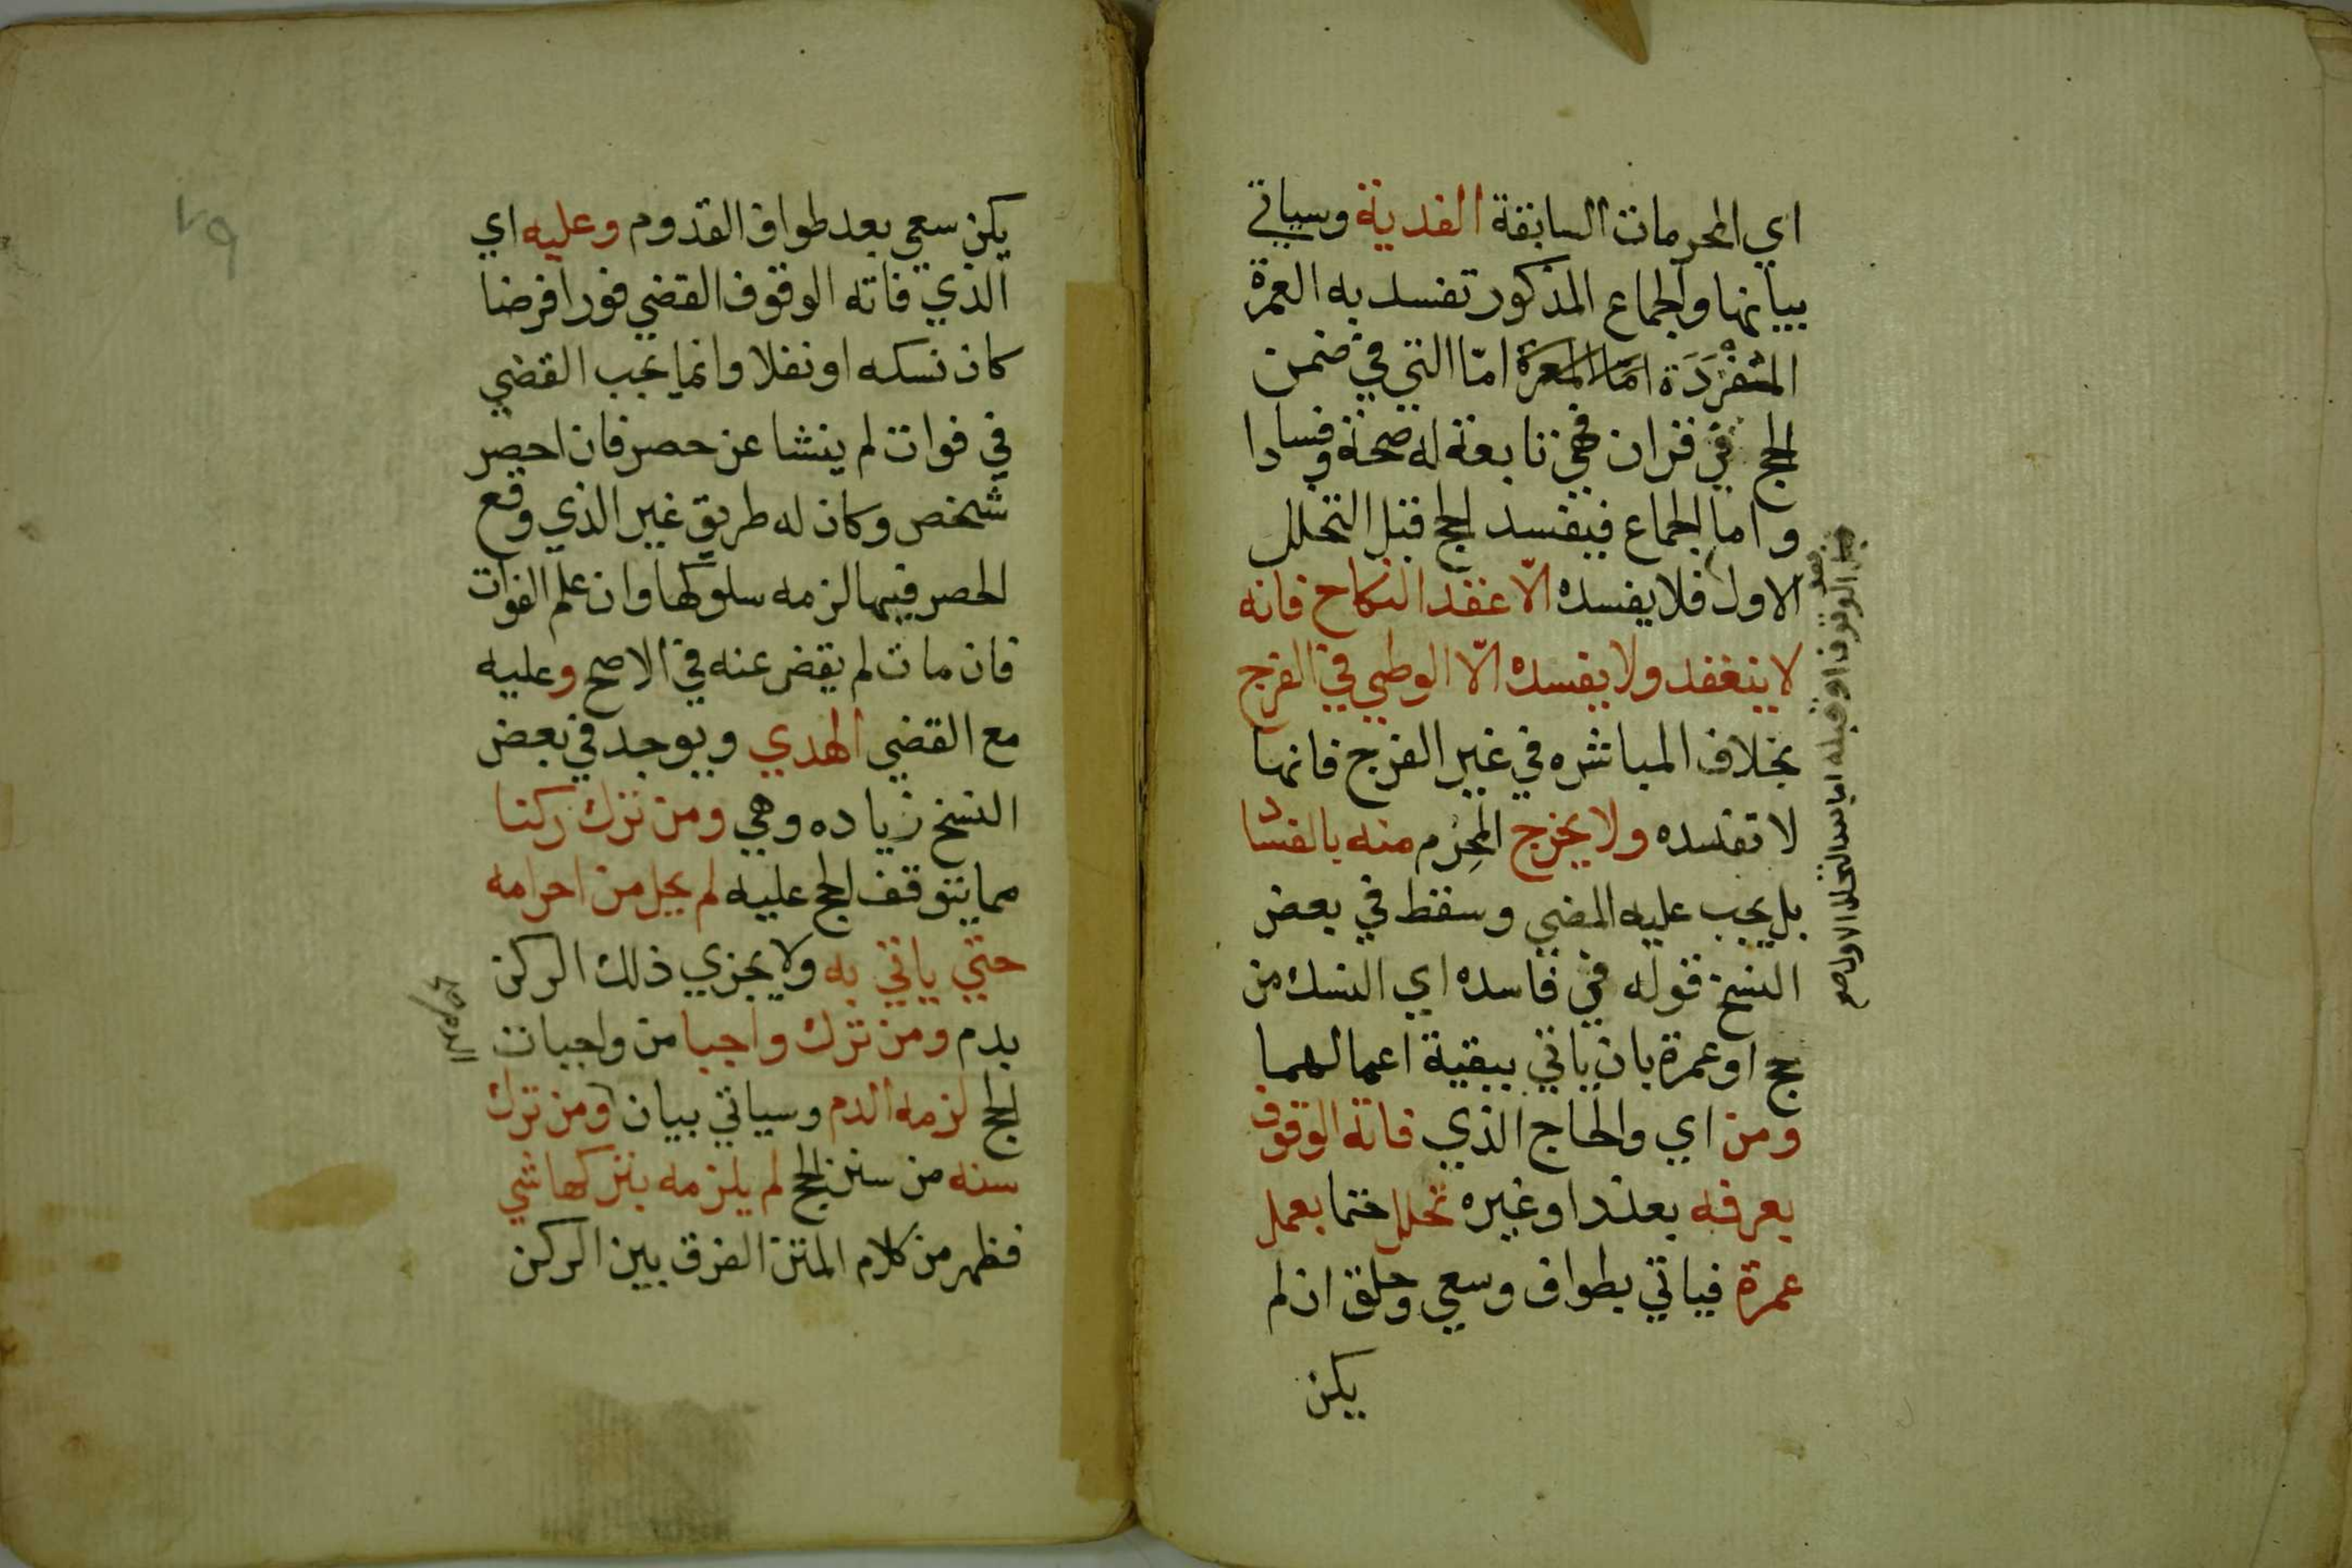 اي المحرمات السابقة الفدية وسياتي
بيانها والجماع المذكور تفسد به العمرة
المنفردة اما التي في ضمن
الحج في قران فهي تابعة له صحة وفسادا
واما الجماع فيفسد الحج قبل التحلل
الاول فلا يفسده الا عقد النكاح فانه
لا ينعقد ولا يفسده الا الوطي في الفرج
بخلاف المباشره في غير الفرج فانها
لا تفسده ولا يخرج المحرم منه بالفساد
بل يجب عليه المضي وسقط في بعض
النسخ قوله في فاسده اي النسك من
حج او عمرة بان ياتي ببقية اعمالهما
ومن اي والحاج الذي فاته الوقوف
بعرفه بعذر او غيره تحلل حتما بعمل
عمرة فياتي بطواف وسعي وحلق ان لم
يكن
بعد الوقوف او قبله اما بعد التحلل الاول صح
٧٩
يكن سعي بعد طواف القدوم وعليه اي
الذي فاته الوقوف القضي فورا فرضا
كان نسكه او نفلا وانما يجب القضي
في فوات لم ينشا عن حصر فان احصر
شخص وكان له طريق غير الذي وقع
الحصر فيها لزمه سلوكها وان علم الفوات
فان مات لم يقض عنه في الاصح وعليه
مع القضي الهدي ويوجد في بعض
النسخ زياده وهي ومن ترك ركنا
مما يتوقف الحج عليه لم يحل من احرامه
حتي ياتي به ولا يجزي ذلك الركن
بدم ومن ترك واجبا من واجبات
الحج لزمه الدم وسياتي بيان ومن ترك
سنه من سنن الحج لم يلزمه بتركها شي
فظهر من كلام المتن الفرق بين الركن